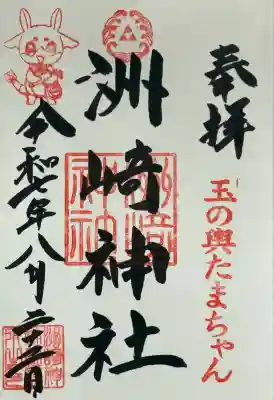 奉拝
玉の輿たまちゃん
洲崎神社
令和七年八月二十三日